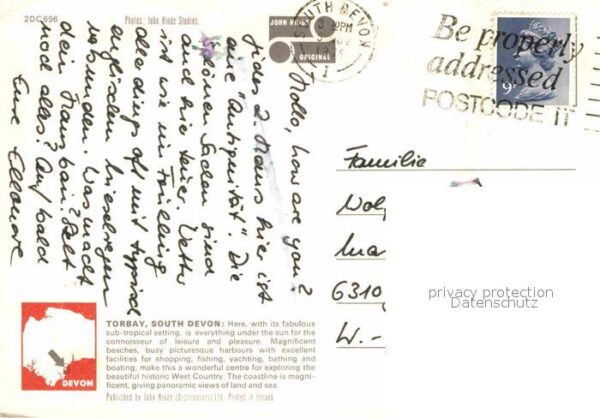 2DC696
Photos: John Hinde Studios.
JOHN HINDE
ORIGINAL
SOUTH DEVON
PM
Be properly
addressed
POSTCODE IT
9P
Hello, how are you?
Jedes 2. Haus hier ist
eine "Antiquität". Die
schönen Sachen sind
auch hier teuer. Wetter
ist wie im Frühling
allerdings oft mit typisch
englischem Nieselregen
verbunden. Was macht
dein Hausbau? Geht
noch alles? Auf bald
Eure Ellonore
Familie
6310
W.-
privacy protection
Datenschutz
DEVON
TORBAY, SOUTH DEVON: Here, with its fabulous
sub-tropical setting, is everything under the sun for the
connoisseur of leisure and pleasure. Magnificent
beaches, busy picturesque harbours with excellent
facilities for shopping, fishing, yachting, bathing and
boating, make this a wonderful centre for exploring the
beautiful historic West Country. The coastline is magni-
ficent, giving panoramic views of land and sea.
Published by John Hinde (Distributors) Ltd. Printed in Ireland.